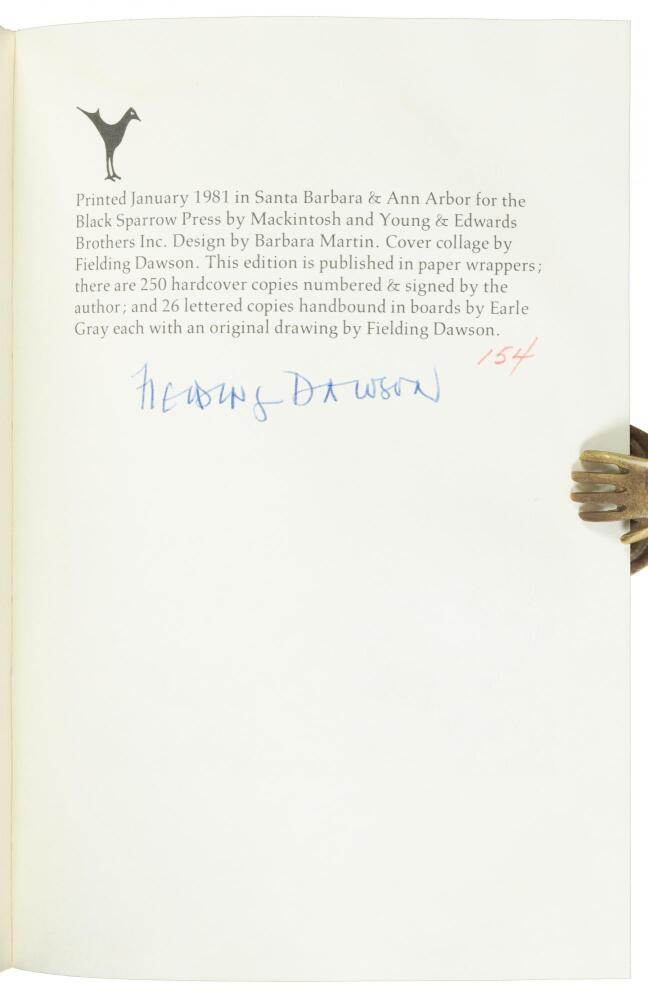 Printed January 1981 in Santa Barbara & Ann Arbor for the
Black Sparrow Press by Mackintosh and Young & Edwards
Brothers Inc. Design by Barbara Martin. Cover collage by
Fielding Dawson. This edition is published in paper wrappers;
there are 250 hardcover copies numbered & signed by the
author; and 26 lettered copies handbound in boards by Earle
Gray each with an original drawing by Fielding Dawson.
154
FIELDING DAWSON